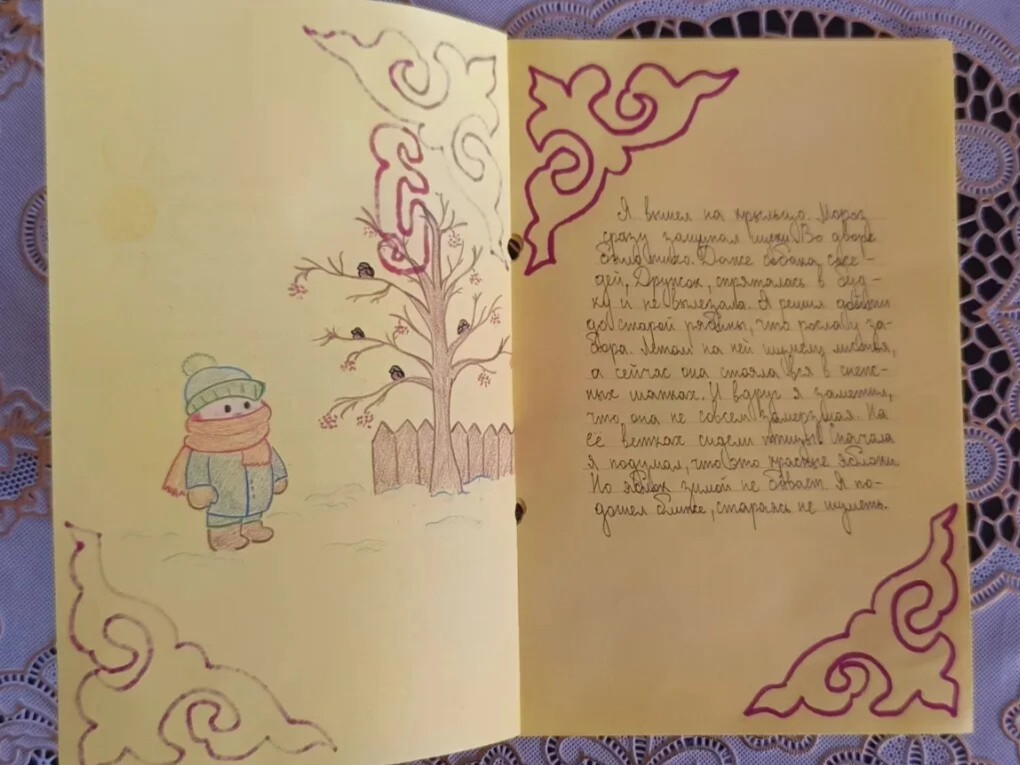 Я вышел на крыльцо. Мороз
сразу защипал щеки. Во дворе
было тихо. Даже собака сосе-
дей, Дружок, спряталась в буд-
ку и не вылезала. Я решил дойти
до старой рябины, что росла у за-
бора. Летом на ней шумели листья,
а сейчас она стояла вся в снеж-
ных шапках. И вдруг я заметил,
что она не совсем замерзшая. На
её ветках сидели птицы! Сначала
я подумал, что это красные яблоки
Но яблок зимой не бывает. Я по-
дошел ближе, стараясь не шуметь.